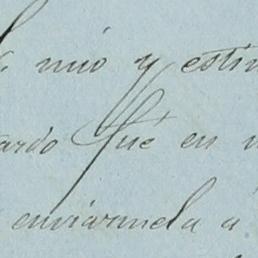 mio y estim
ardo fué en
enviarmela a